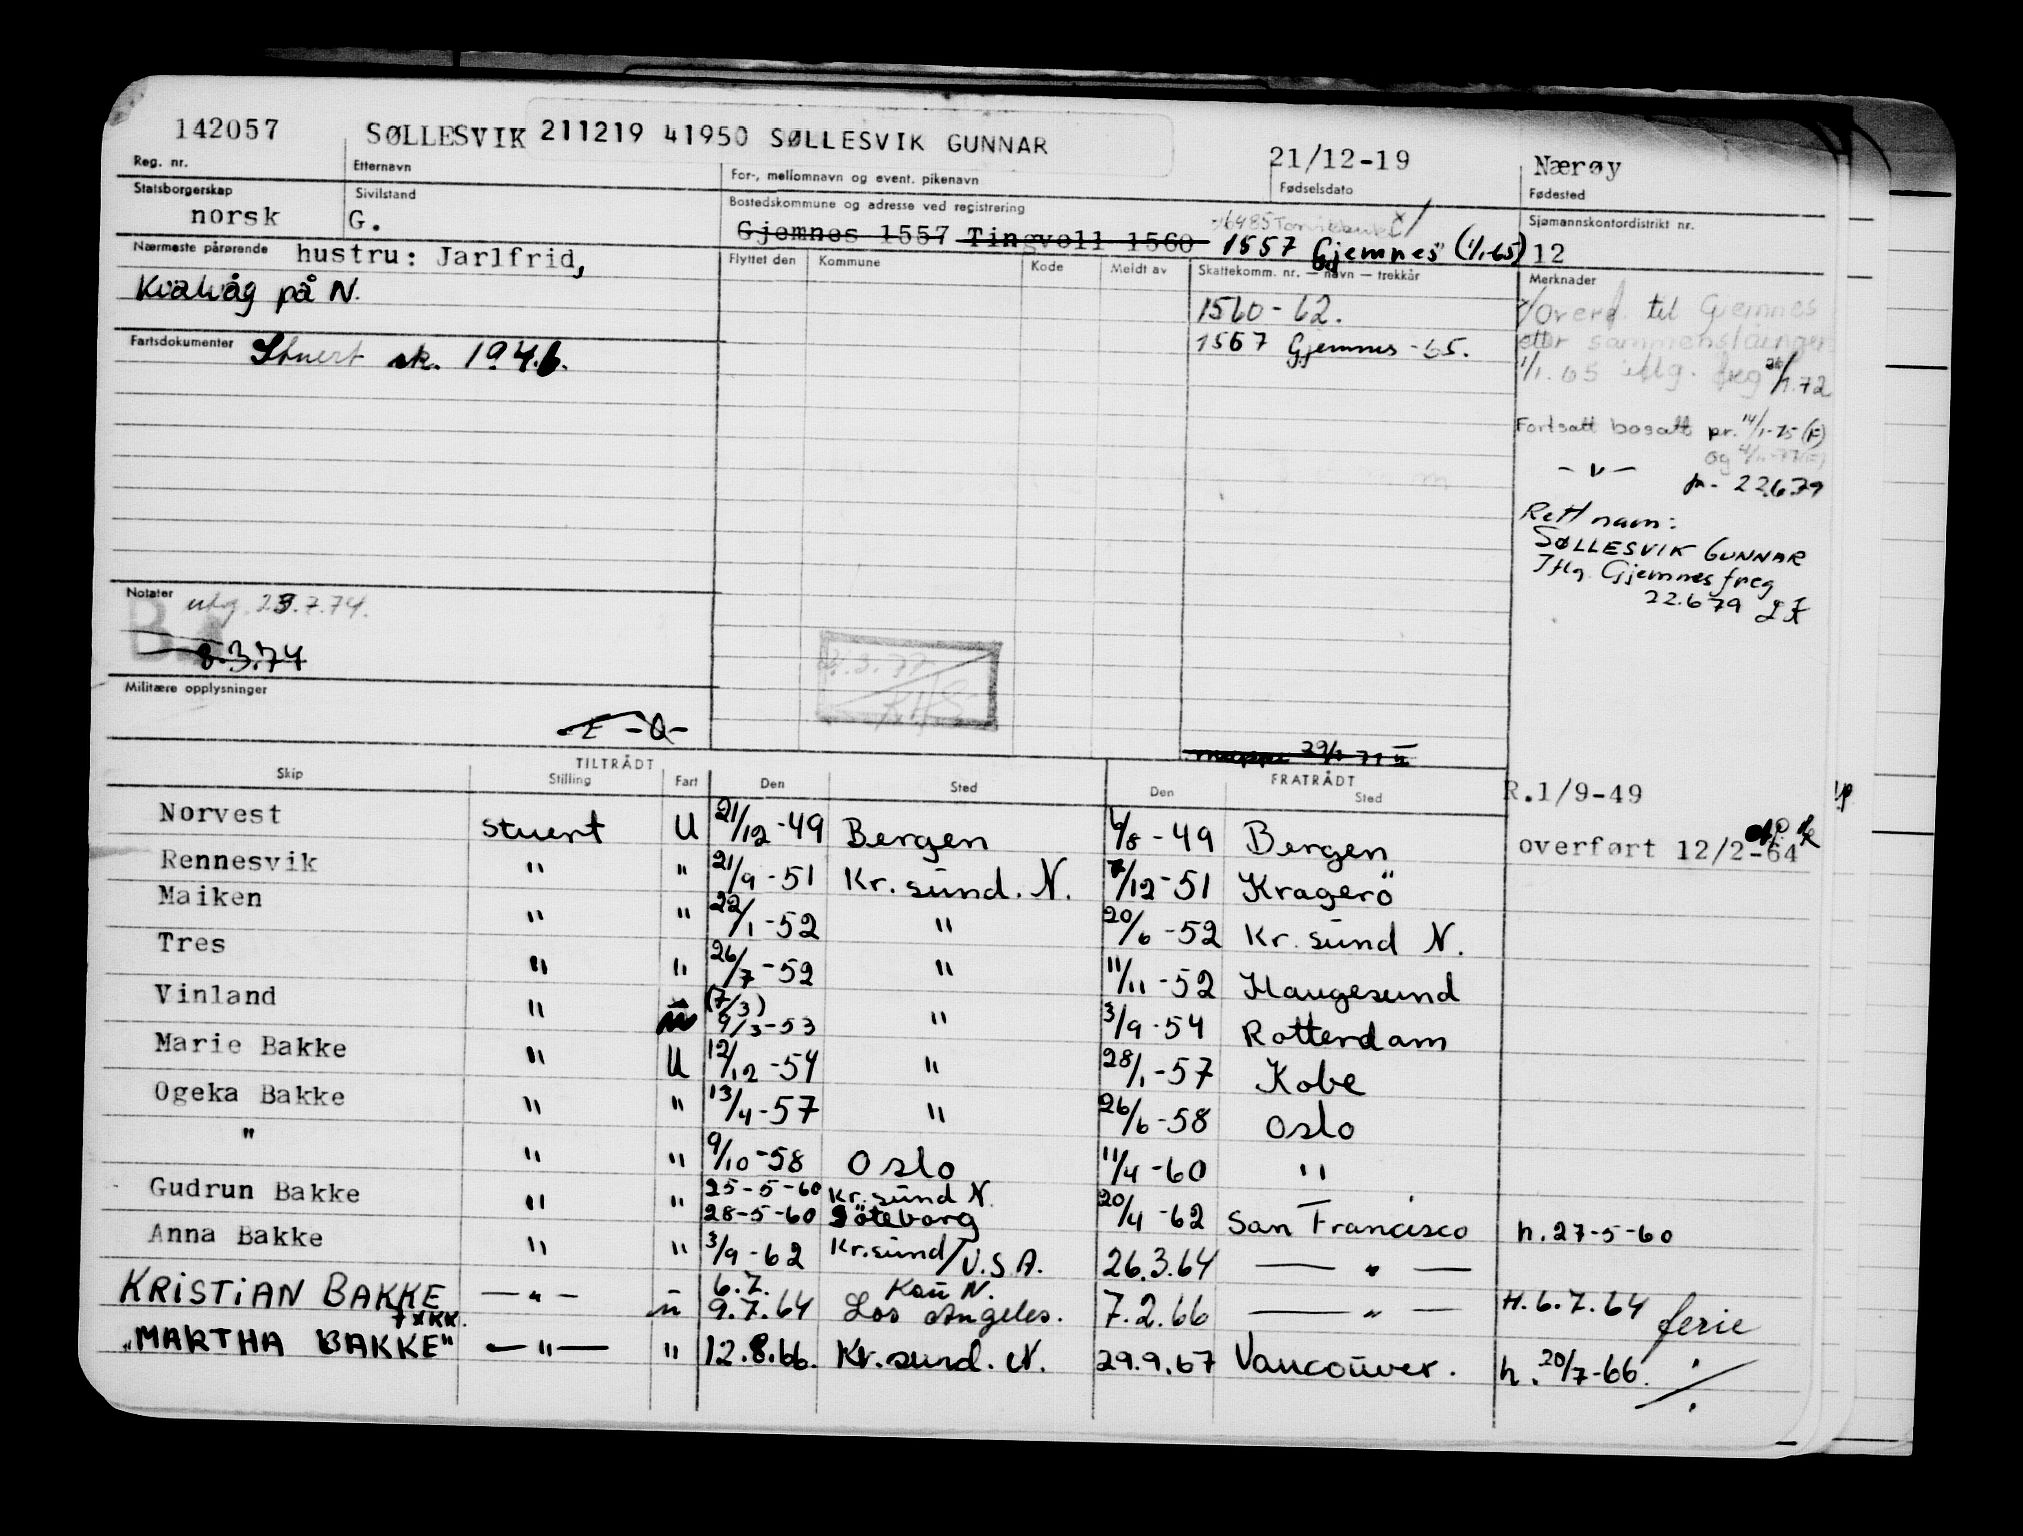 142057 SØLLESVIK 211219 41950 SØLLESVIK GUNNAR 21/12-19 Nærøy
Reg. nr. Etternavn For-, mellomnavn og event. pikenavn Fødselsdato Fødested
Statsborgerskap Sivilstand Bostedskommune og adresse ved registrering Sjømannskontordistrikt nr.
norsk G. Gjemnes 1557 Tingvoll 1560 1557 Gjemnes (1/1-65) 12
Nærmeste pårørende hustru: Jarlfrid,
Kvalvåg på N.
Flyttet den Kommune Kode Meldt av Skattekomm. nr. — navn — trekkår Merknader
1560-62.
1557 Gjemnes -65.
Overf. til Gjemnes
etter sammenslåinger
1/1.65 iflg. freg 26/1.72
Fortsatt bosatt pr. 14/1-75 (F)
og
— " — pr. 22.6.79
Rett navn:
SØLLESVIK GUNNAR
Iflg. Gjemnes freg
22.6 79
Fartsdokumenter Stuert sk. 1946.
Notater utg. 23.7.74.
8.3.74
Militære opplysninger
TILTRÅDT FRATRÅDT
Skip Stilling Fart Den Sted Den Sted
R.1/9-49
overført 12/2-64
Norvest stuert U 21/12-49 Bergen 6/8-49 Bergen
Rennesvik " " 21/9-51 Kr.sund. N. 7/12-51 Kragerö
Maiken " " 22/1-52 " 20/6-52 Kr.sund N.
Tres " " 26/7-52 " 11/11-52 Haugesund
Vinland " (7/3) 9/3-53 " 3/9-54 Rotterdam
Marie Bakke " U 12/12-54 " 28/1-57 Kobe
Ogeka Bakke " " 13/4-57 " 26/6-58 Oslo
" " " 9/10-58 Oslo 11/4-60 "
Gudrun Bakke " " 25-5-60 Kr.sund N. 20/4-62 San Francisco h. 27-5-60
28-5-60 Göteborg
Anna Bakke " " 3/9-62 Kr.sund/U.S.A. 26.3.64 — " —
KRISTIAN BAKKE — " — u 6.7. 9.7.64 Los Angeles. 7.2.66 — " — H. 6.7.64 ferie
"MARTHA BAKKE" — " — " 12.8.66. Kr.sund. N. 29.9.67 Vancouver. h. 20/7-66.